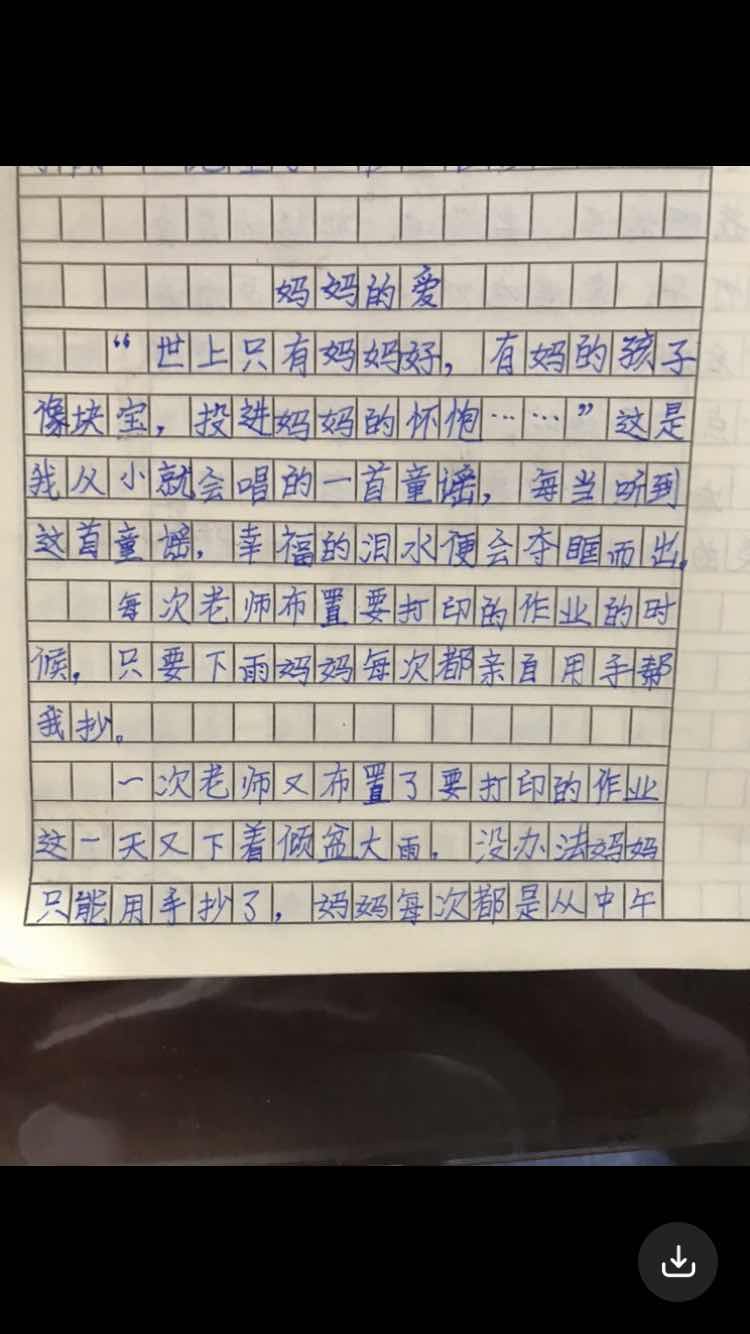 妈妈的爱
“世上只有妈妈好，有妈的孩子
像块宝，投进妈妈的怀抱……”这是
我从小就会唱的一首童谣，每当听到
这首童谣，幸福的泪水便会夺眶而出。
每次老师布置要打印的作业的时
候，只要下雨妈妈每次都亲自用手帮
我抄。
一次老师又布置了要打印的作业
这一天又下着倾盆大雨。没办法妈妈
只能用手抄了，妈妈每次都是从中午